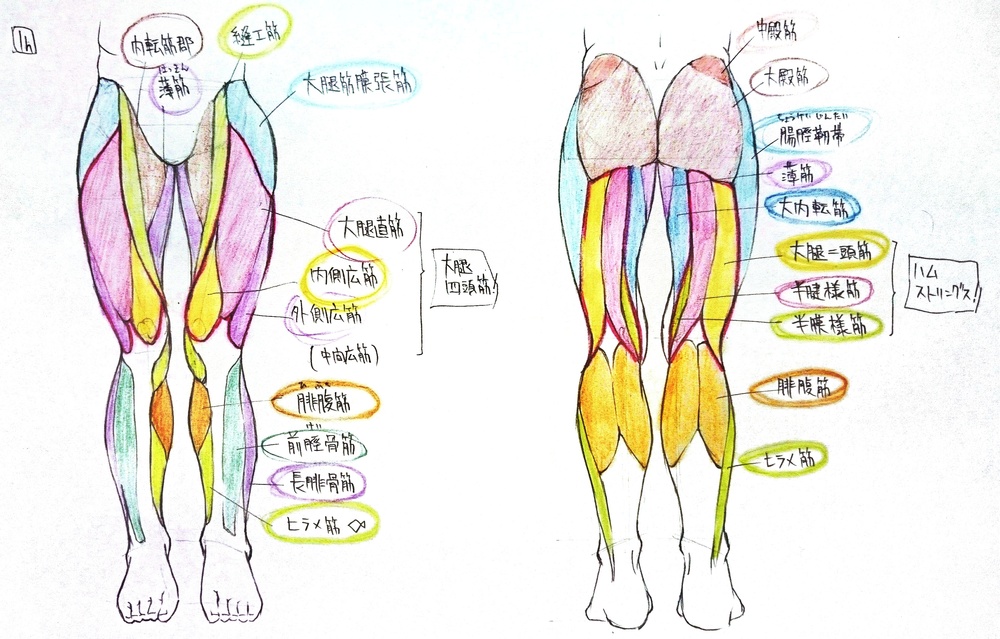 1h
内転筋郡
はっきん
薄筋
縫工筋
大腿筋膜張筋
大腿直筋
内側広筋
外側広筋
(中向広筋)
大腿
四頭筋!
腓腹筋
前脛骨筋
長腓骨筋
ヒラメ筋
中殿筋
大殿筋
ちょうけいじんたい
腸脛靭帯
薄筋
大内転筋
大腿二頭筋
半腱様筋
半膜様筋
ハム
ストリングス!
腓腹筋
ヒラメ筋